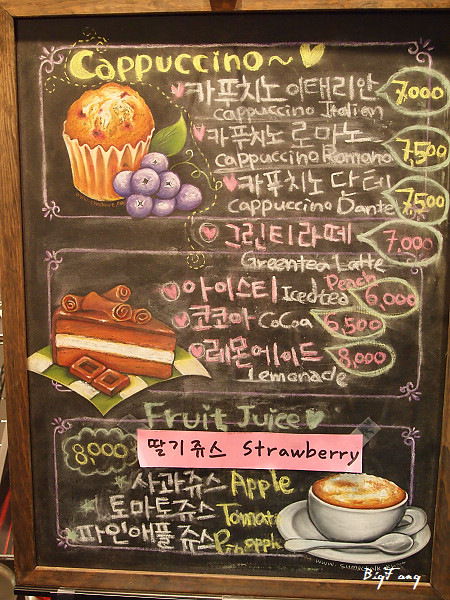 Cappuccino~
카푸치노 이태리안 7,000
cappuccino Italien
카푸치노 로마노 7,500
cappuccino Romano
카푸치노 단테 7,500
cappuccino Dante
그린티라떼 7,000
Greentea Latte
아이스티 Icedtea Peach 6,000
코코아 CoCoa 6,500
레몬에이드 8,000
Lemonade
Fruit Juice
8,000
딸기쥬스 Strawberry
사과쥬스 Apple
토마토쥬스 Tomato
파인애플쥬스 Pineapple
BigFang